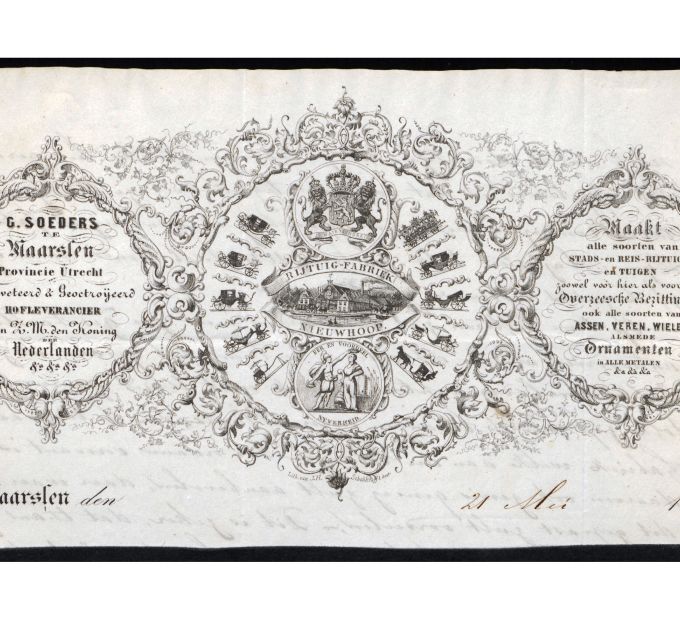 G. SOEDERS
TE
Maarsſen
Provincie Utrecht
veteerd & Geoctroijeerd
HOFLEVERANCIER
Z. M. den Koning
DER
Nederlanden
&c &c &c
RIJTUIG-FABRIEK
NIEUWHOOP
EER EN VOORDEEL
NYVERHEID
Lith. van J. H.
Maakt
alle soorten van
STADS- en REIS-RIJTUIG
en TUIGEN
zoowel voor hier als voor
Overzeesche Bezittin
ook alle soorten van
ASSEN, VEREN, WIELE
ALSMEDE
Ornamenten
in ALLE METALEN
&a &a &a
aarsſen den 21 Mei 1